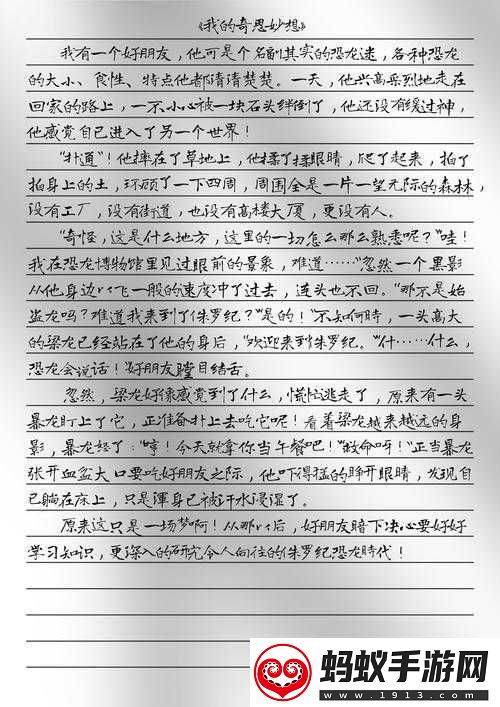 《我的奇思妙想》
我有一个好朋友，他可是个名副其实的恐龙迷，各种恐龙
的大小、食性、特点他都清清楚楚。一天，他兴高采烈地走在
回家的路上，一不小心被一块石头绊倒了，他还没有缓过神，
他感觉自己进入了另一个世界！
“扑通”！他摔在了草地上，他揉了揉眼睛，爬了起来，拍了
拍身上的土，环顾了一下四周，周围全是一片一望无际的森林，
没有工厂，没有街道，也没有高楼大厦，更没有人。
“奇怪，这是什么地方，这里的一切怎么那么熟悉呢？”哇！
我在恐龙博物馆里见过眼前的景象，难道……”忽然一个黑影
从他身边以飞一般的速度冲了过去，连头也不回。“那不是始
盗龙吗？难道我来到了侏罗纪？”“是的！”不知何時，一头高大
的梁龙已经站在了他的身后，“欢迎来到侏罗纪。”“什……什么，
恐龙会说话！”好朋友瞠目结舌。
忽然，梁龙好像感觉到了什么，慌忙逃走了，原来有一头
暴龙盯上了它，正准备扑上去吃它呢！看着梁龙越来越远的身
影，暴龙怒了：“哼！今天就拿你当午餐吧！”“救命呀！”正当暴龙
张开血盆大口要吃好朋友之际，他吓得猛的睁开眼睛，发现自
己躺在床上，只是渾身已被汗水浸湿了。
原来这只是一场梦啊！从那以后，好朋友暗下决心要好好
学习知识，更深入的研究令人向往的侏罗纪恐龙時代！
蚂蚁手游网
www.1913.com